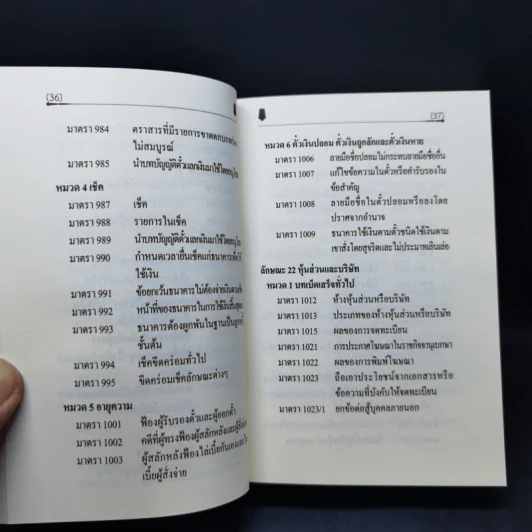 (36)
มาตรา 984 ตราสารที่มีรายการขาดตกบกพร่อง
ไม่สมบูรณ์
มาตรา 985 นำบทบัญญัติตั๋วแลกเงินมาใช้โดยอนุโลม
หมวด 4 เช็ค
มาตรา 987 เช็ค
มาตรา 988 รายการในเช็ค
มาตรา 989 นำบทบัญญัติตั๋วแลกเงินมาใช้โดยอนุโลม
มาตรา 990 กำหนดเวลายื่นเช็คแก่ธนาคารเพื่อให้
ใช้เงิน
มาตรา 991 ข้อยกเว้นธนาคารไม่ต้องจ่ายเงินตามเช็ค
มาตรา 992 หน้าที่ของธนาคารในการใช้เงินสิ้นสุดลง
มาตรา 993 ธนาคารต้องผูกพันในฐานเป็นลูกหนี้
ชั้นต้น
มาตรา 994 เช็คขีดคร่อมทั่วไป
มาตรา 995 ขีดคร่อมเช็คลักษณะต่างๆ
หมวด 5 อายุความ
มาตรา 1001 ฟ้องผู้รับรองตั๋วและผู้ออกตั๋ว
มาตรา 1002 คดีที่ผู้ทรงฟ้องผู้สลักหลังและผู้สั่งจ่าย
มาตรา 1003 ผู้สลักหลังฟ้องไล่เบี้ยกันเองและ
เบี้ยผู้สั่งจ่าย
(37)
หมวด 6 ตั๋วเงินปลอม ตั๋วเงินถูกลักและตั๋วเงินหาย
มาตรา 1006 ลายมือชื่อปลอมไม่กระทบลายมือชื่ออื่น
มาตรา 1007 แก้ไขข้อความในตั๋วหรือคำรับรองใน
ข้อสำคัญ
มาตรา 1008 ลายมือชื่อในตั๋วปลอมหรือลงโดย
ปราศจากอำนาจ
มาตรา 1009 ธนาคารใช้เงินตามตั๋วชนิดใช้เงินตาม
เขาสั่งโดยสุจริตและไม่ประมาทเลินเล่อ
ลักษณะ 22 หุ้นส่วนและบริษัท
หมวด 1 บทเบ็ดเสร็จทั่วไป
มาตรา 1012 ห้างหุ้นส่วนหรือบริษัท
มาตรา 1013 ประเภทของห้างหุ้นส่วนหรือบริษัท
มาตรา 1015 ผลของการจดทะเบียน
มาตรา 1021 การประกาศโฆษณาในราชกิจจานุเบกษา
มาตรา 1022 ผลของการพิมพ์โฆษณา
มาตรา 1023 ถือเอาประโยชน์จากเอกสารหรือ
ข้อความที่บังคับให้จดทะเบียน
มาตรา 1023/1 ยกข้อต่อสู้บุคคลภายนอก